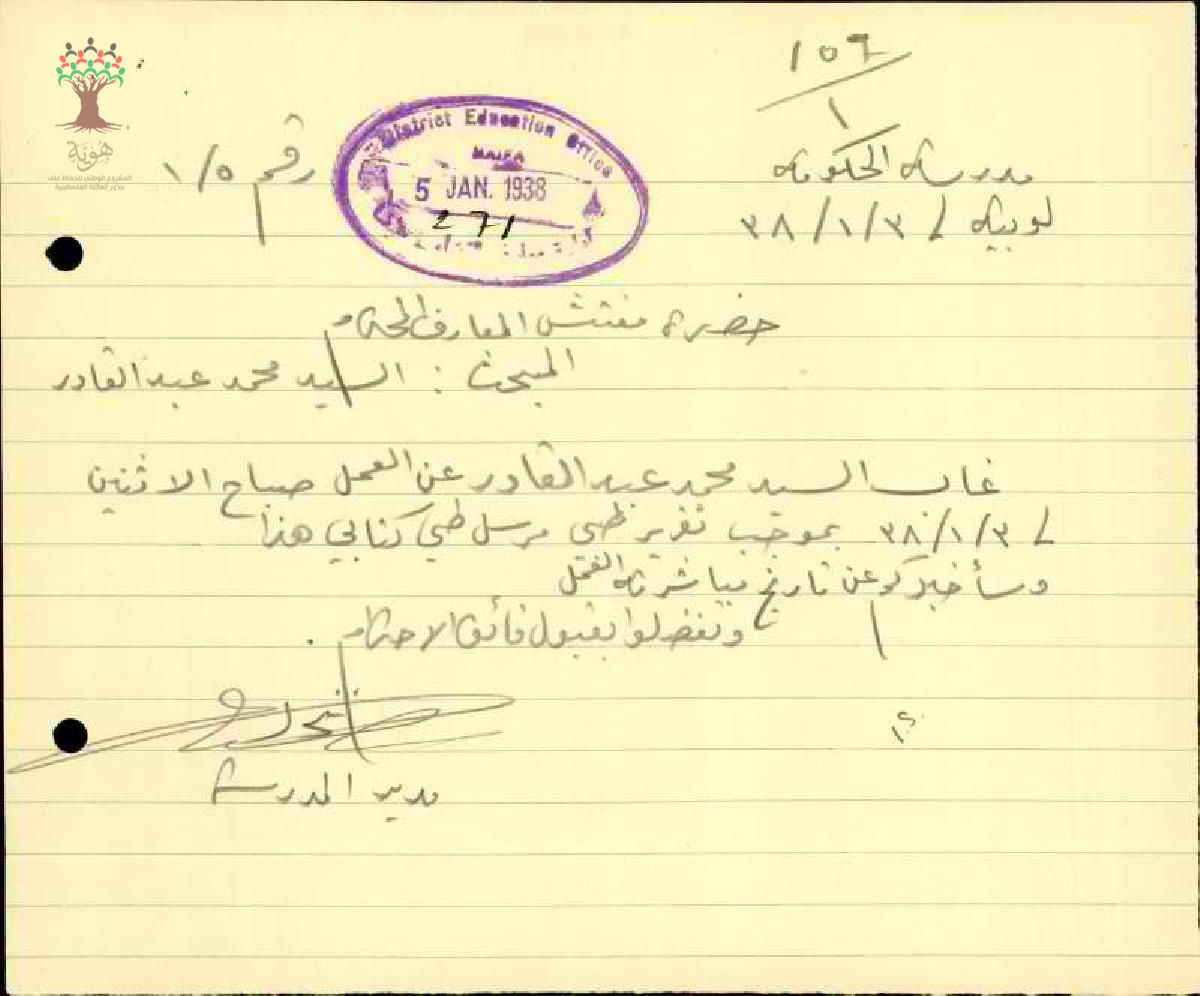 ١٥٦
١
مدرسة الحكومة
لوبية ٣/١/٣٨
رقم ١/٥
District Education Office
HAIFA
5 JAN. 1938
271
حضرة مفتش المعارف المحترم
المبحث : السيد محمد عبد القادر
غاب السيد محمد عبد القادر عن العمل صباح الاثنين
٣/١/٣٨ بموجب تقرير طبي مرسل طي كتابي هذا
وسأخبركم عن تاريخ مباشرته العمل
وتفضلوا بقبول فائق الاحترام .
مدير المدرسة
هوية
المشروع الوطني للحفاظ على
جذور العائلة الفلسطينية